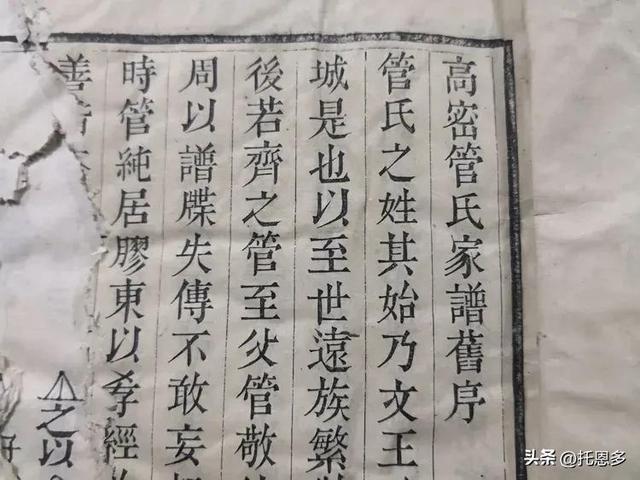 高密管氏家譜舊序
管氏之姓其始乃文王
城是也以至世遠族繁
後若齊之管至父管敬
周以譜牒失傳不敢妄
時管純居膠東以孝經
善
之以
头条 @托恩多